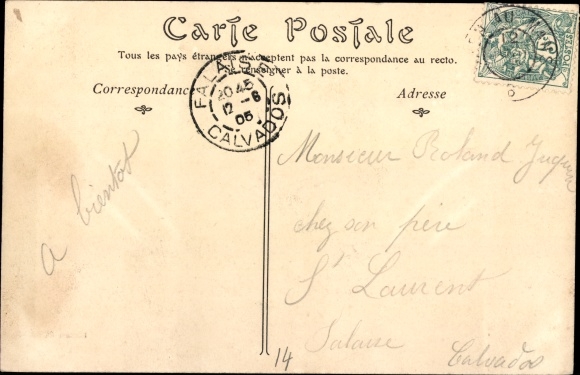 Carte Postale
Tous les pays étrangers n'acceptent pas la correspondance au recto.
Se renseigner à la poste.
Correspondance
Adresse
FALAISE
20 45
12 - 8
05
CALVADOS
POSTES
a bientot
Monsieur Roland
chez son père
St Laurent
Falaise
Calvados
14